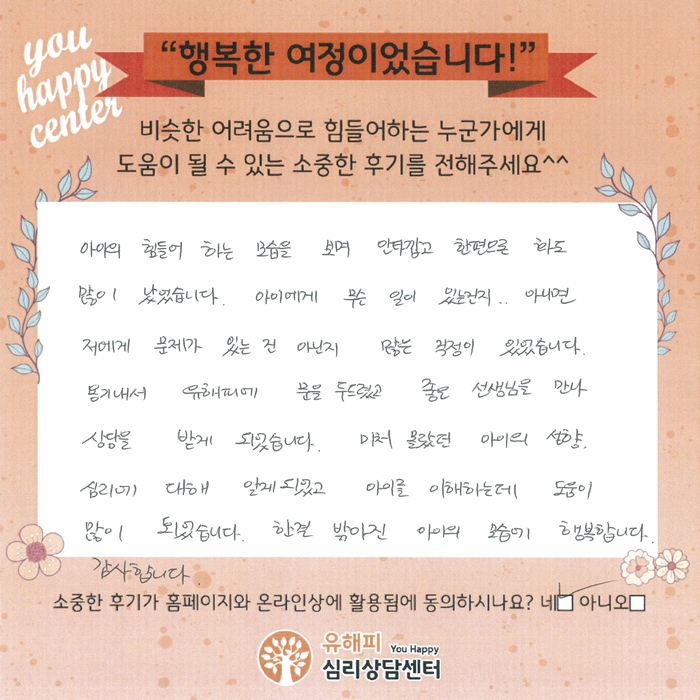 you
happy
center
“행복한 여정이었습니다!”
비슷한 어려움으로 힘들어하는 누군가에게
도움이 될 수 있는 소중한 후기를 전해주세요^^
아이의 힘들어 하는 모습을 보며 안타깝고 한편으론 화도
많이 났었습니다. 아이에게 무슨 일이 있는건지.. 아니면
저에게 문제가 있는 건 아닌지 많은 걱정이 있었습니다.
용기내서 유해피에 문을 두드렸고 좋은 선생님을 만나
상담을 받게 되었습니다. 미처 몰랐던 아이의 성향,
심리에 대해 알게되었고 아이를 이해하는데 도움이
많이 되었습니다. 한결 밝아진 아이의 모습에 행복합니다.
감사합니다.
소중한 후기가 홈페이지와 온라인상에 활용됨에 동의하시나요? 네 아니오
유해피 You Happy
심리상담센터